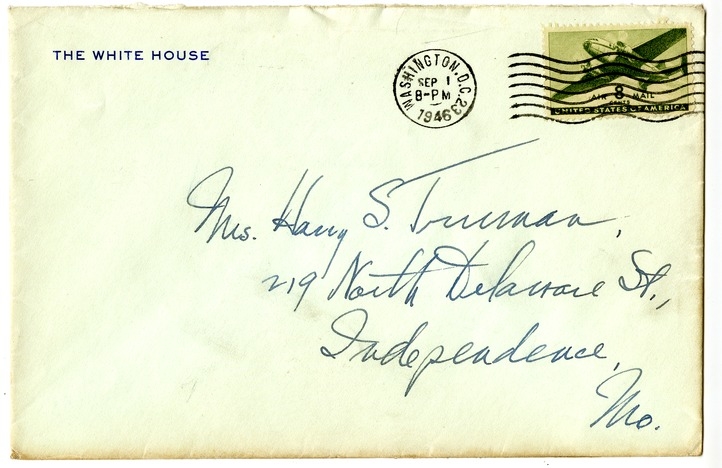 THE WHITE HOUSE
WASHINGTON, D.C. 23
SEP 1
8-PM
1946
AIR 8 MAIL
CENTS
UNITED STATES OF AMERICA
Mrs. Harry S. Truman,
219 North Delaware St.,
Independence,
Mo.